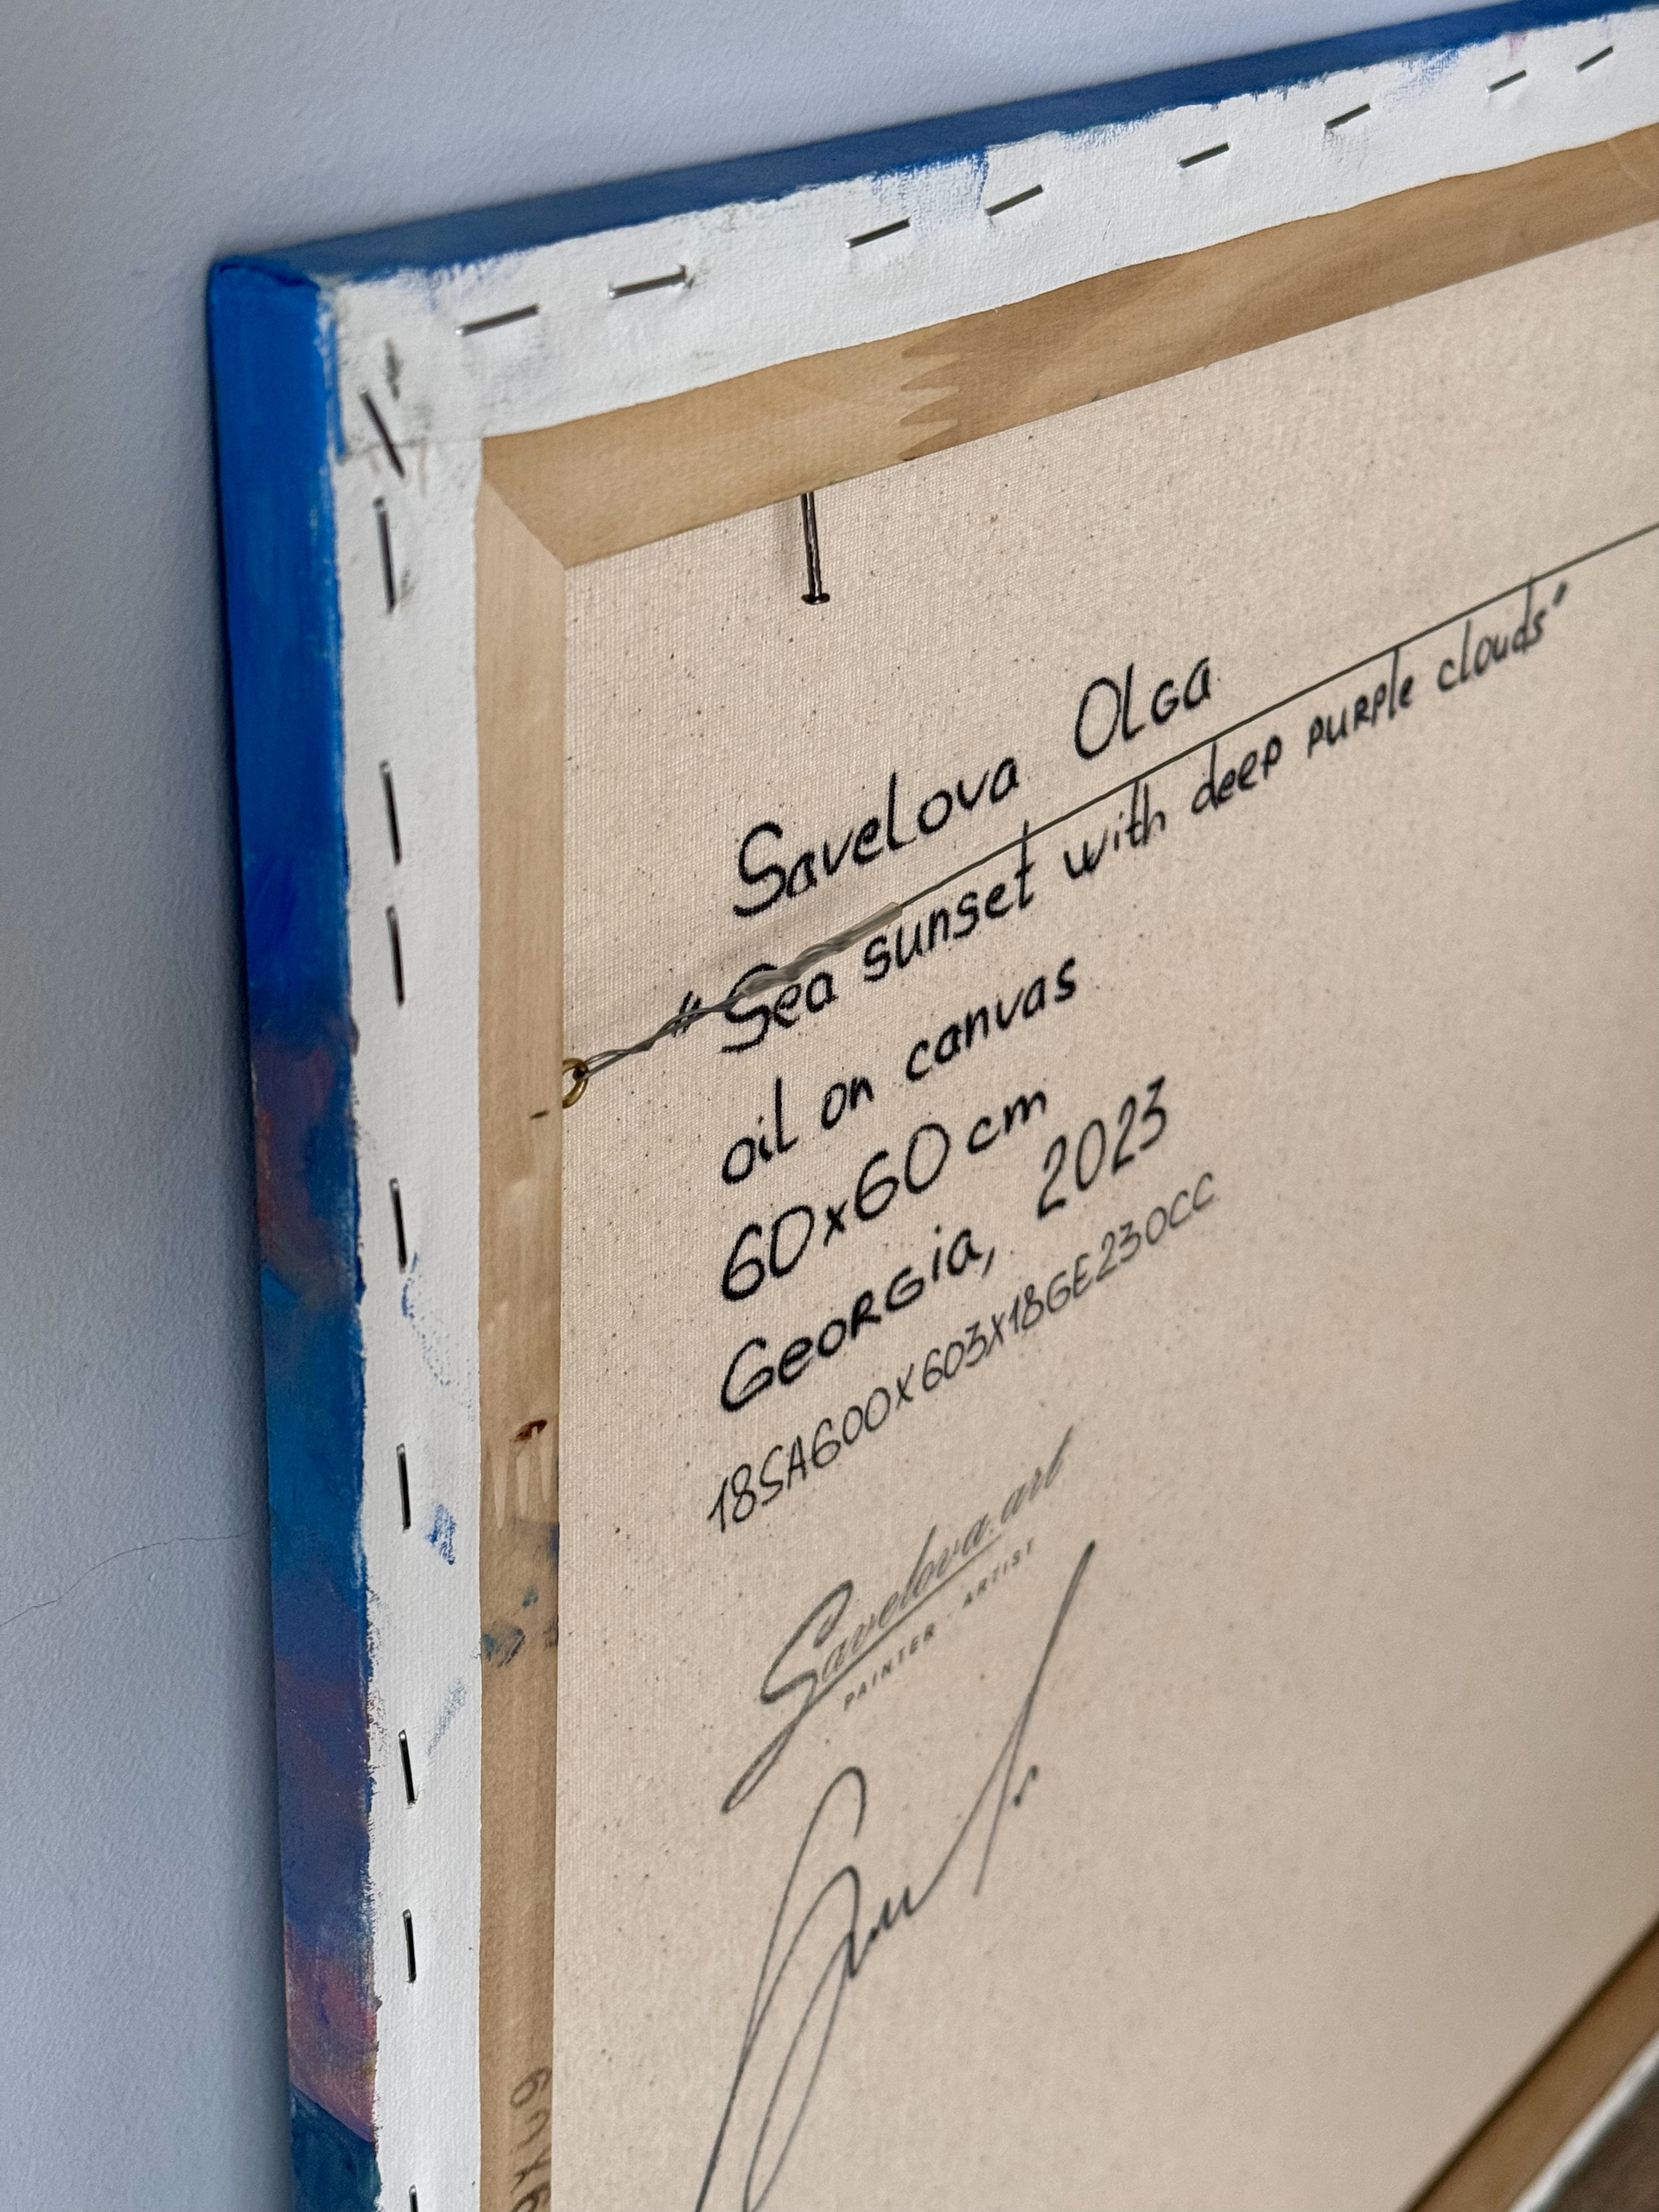 Savelova Olga
"Sea sunset with deep purple clouds"
oil on canvas
60x60 cm
Georgia, 2023
18SA600X603X18GE230CC
Savelova.art
PAINTER · ARTIST